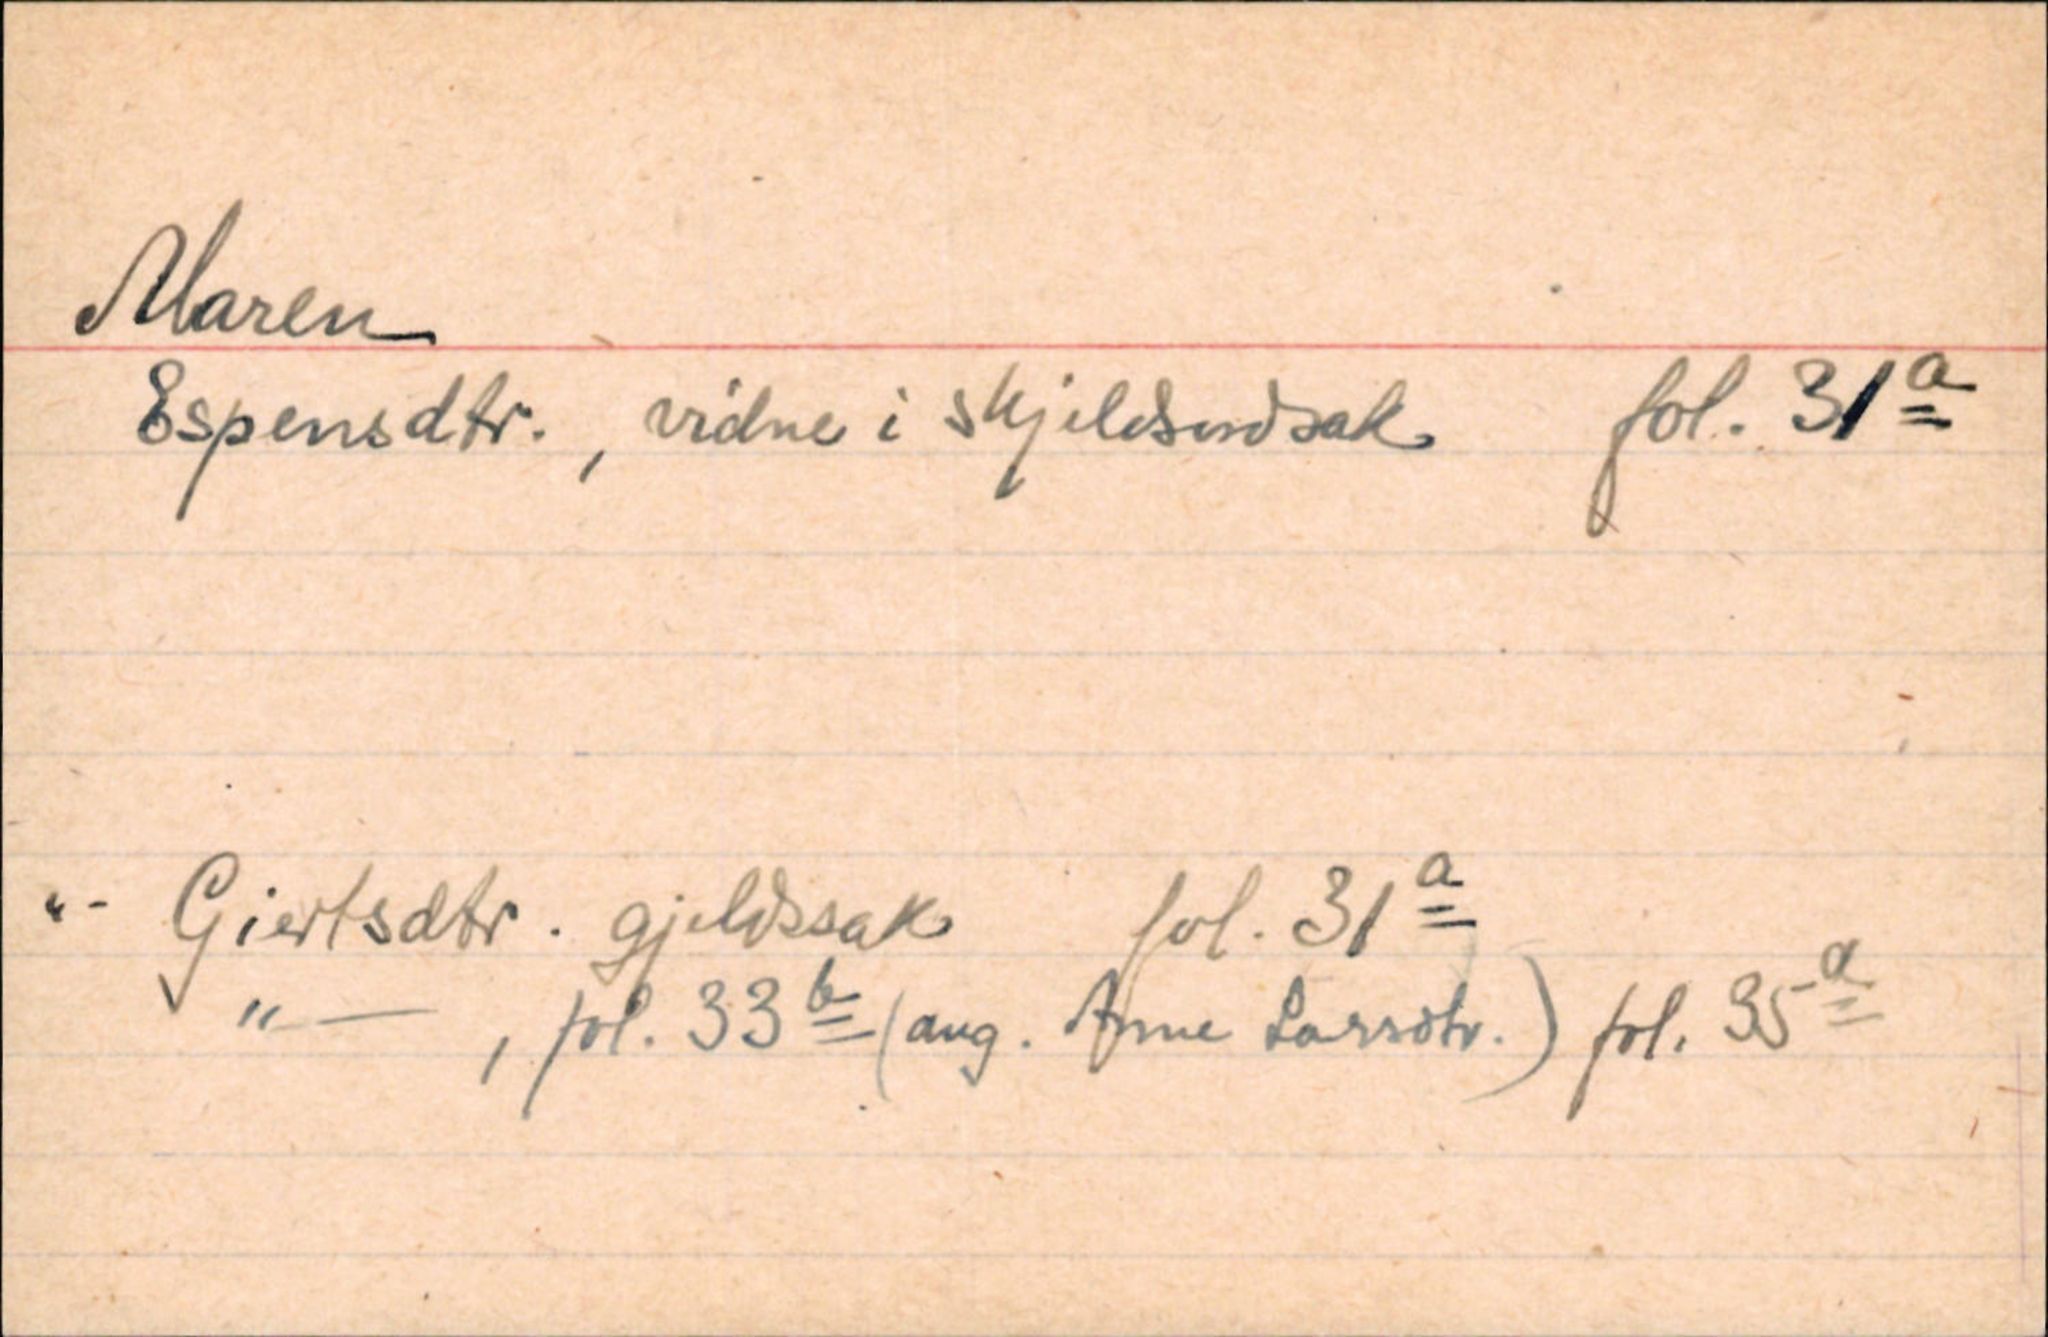 Maren
Espensdtr., vidne i skjeldsordsak fol. 31a
"- Giertsdtr. gjeldssak fol. 31a
"—, fol. 33b (ang. Anne Larsdtr.) fol. 35a